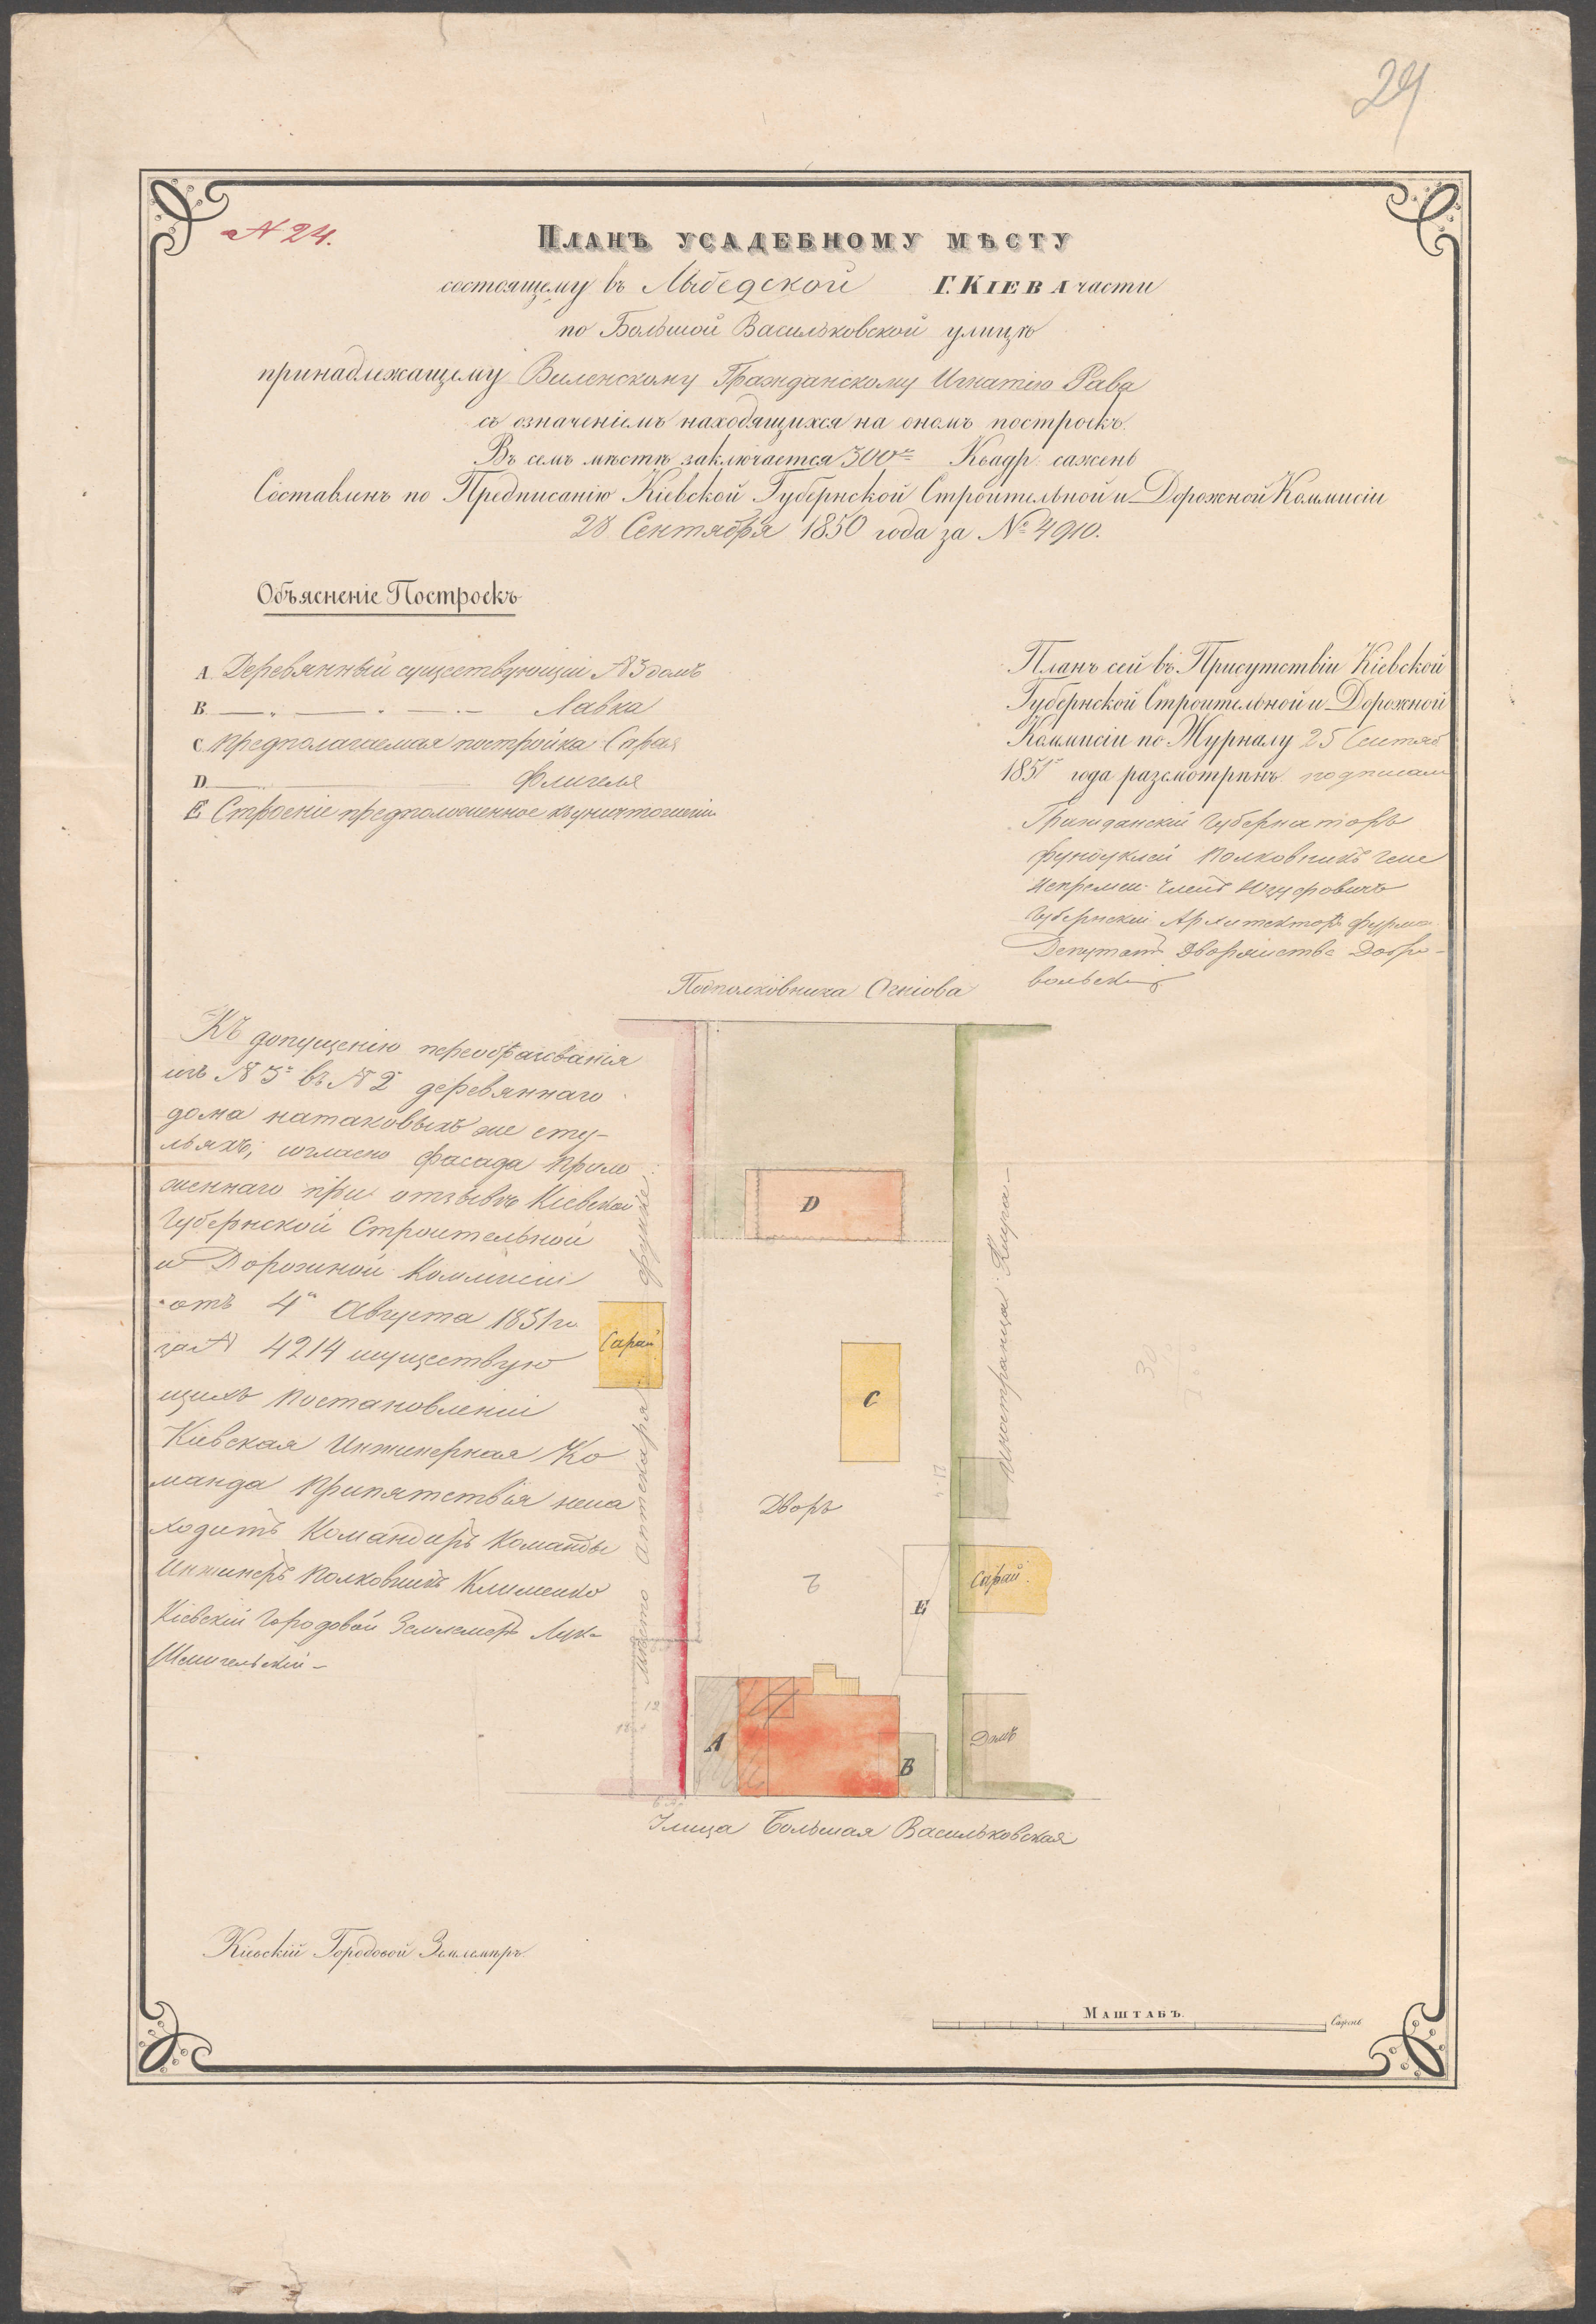 24
№ 24.
Планъ усадебному мѣсту
состоящему въ Лыбедской Г. Кіева части
по Большой Васильковской улицѣ
принадлежащему Виленскому Гражданскому Игнатію Рава
съ означеніемъ находящихся на ономъ построекъ.
Въ семъ мѣстѣ заключается 300 Квадр: сажень
Составленъ по Предписанію Кіевской Губернской Строительной и Дорожной Коммисіи
28 Сентября 1850 года за № 4910.
Объясненіе Построекъ
A Деревянный существующій №3 домъ
B — „ — „ — Лавка
C Предполагаемая постройка Сарая
D — Флигеля
E Строеніе предположенное къ уничтоженію
Планъ сей въ Присутствіи Кіевской
Губернской Строительной и Дорожной
Коммисіи по Журналу 25 Сентяб
1851 года разсмотрѣнъ подписали
Гражданскій Губернаторъ
Фундуклей Полковникъ
Непремен: Членъ Юзефовичъ
Губернскій Архитекторъ
Депутатъ Дворянства Добро-
вольскій
Подполковника
Къ допущенію переобразованія
изъ №3 въ №2 деревяннаго
дома на таковыхъ же сту-
льяхъ, согласно фасада прило
женнаго при отзывѣ Кіевской
Губернской Строительной
и Дорожной Коммисіи
отъ 4 Августа 1851 го
за № 4214 и существую
щихъ Постановленій
Кіевская Инжинерная Ко
манда Припятствія нена
ходитъ Командиръ Команды
Инжинеръ Полковникъ Клименко
Кіевскій Городовой Землемеръ
Мѣсто аптекаря
Сарай
D
C
Дворъ
E
A
B
иностранца
Сарай
Домъ
30
12
Улица Большая Васильковская
Кіевскій Городовой Землемѣръ.
Маштабъ.
Сажень